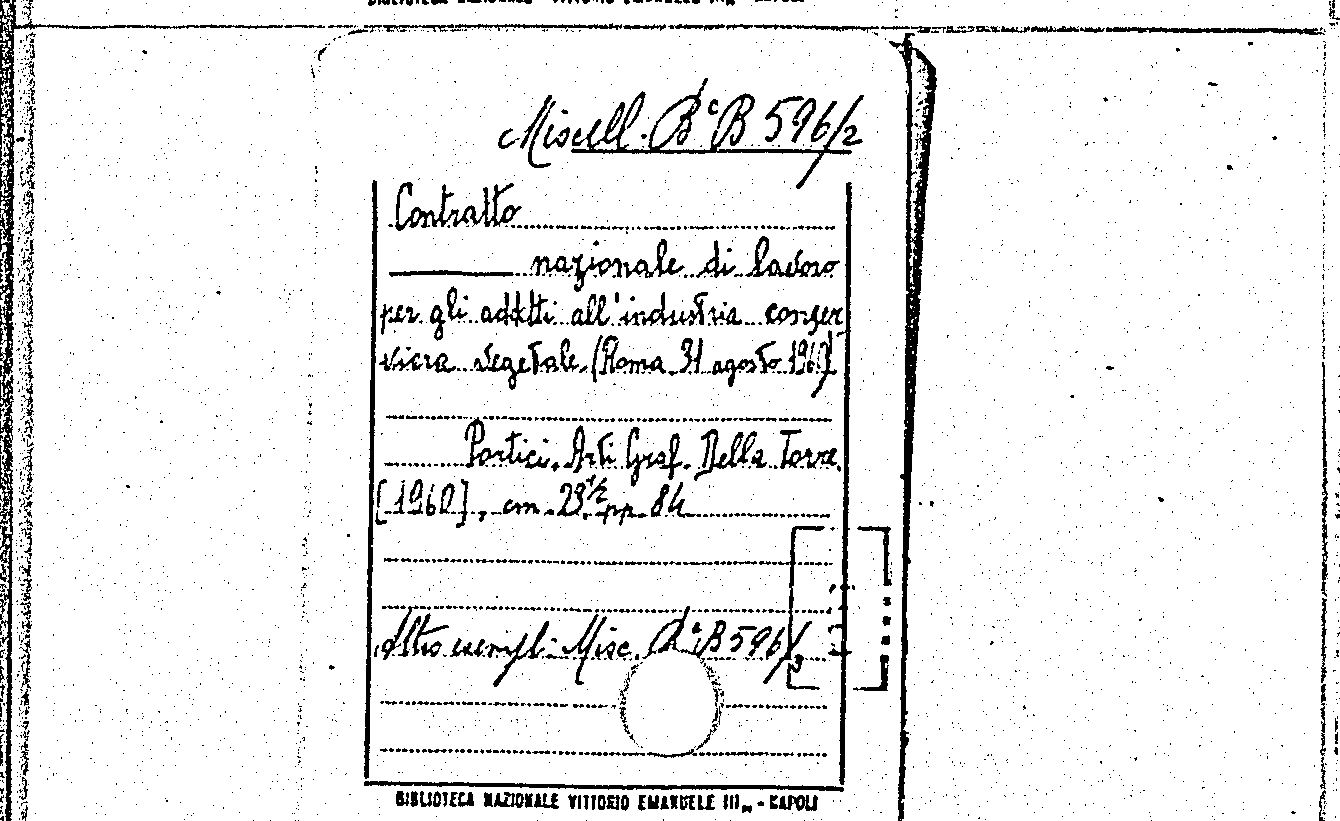 BIBLIOTECA NAZIONALE VITTORIO EMANUELE III - NAPOLI
Miscell. Bª B 596/2
Contratto
nazionale di lavoro
per gli addetti all'industria conser
viera vegetale (Roma 31 agosto 1960)
Portici, Arti Graf. Della Torre
[1960], cm. 23½ pp. 84
Altro esempl: Misc. Bª B 596/3
BIBLIOTECA NAZIONALE VITTORIO EMANUELE III - NAPOLI